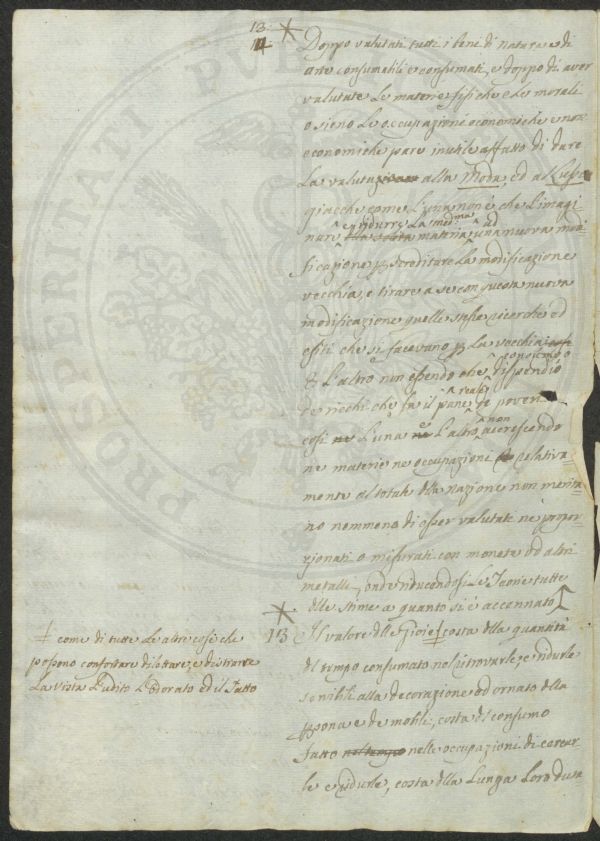 13. *
14
Doppo valutati tutti i beni di natura e di
arte consumabili e consumati, e doppo di aver
valutate le materie fisiche e le morali
o sieno le occupazioni economiche e non
economiche pare inutile affatto di dare
la valutazione alla Moda, ed al Lusso
giacche come l'una non è che l'imagi
nare e ridurre la med:ma materia ad una nuova mod
ificazione p screditare la modificazione
vecchia, e tirare a se con questa nuova
modificazione quelle stesse ricerche ed
esiti che si facevano p la vecchia
E l'altro non essendo che consumo o dispendio
de ricchi che fa il pane reale de poveri
così l'una e l'altro non accrescendo
ne materie ne occupazioni relativa
mente al totale della nazione non merita
no nemmeno di esser valutate ne propor
zionati o misurati con monete od altri
metalli, onde riducendosi le Teorie tutte
delle stime a quanto si è accennato
*
13 Il valore delle Gioie ‡ costa della quantità
del tempo consumato nel ritrovarle, e ridurle
servibili alla decorazione od ornato della
persona e de mobili, costa del consumo
fatto nelle occupazioni di cercar
le e ridurle, costa della lunga loro dura
‡ come di tutte le altre cose che
possono confortare dilettare, e distrarre
la vista l'udito l'odorato ed il Tatto
PROSPERITATI